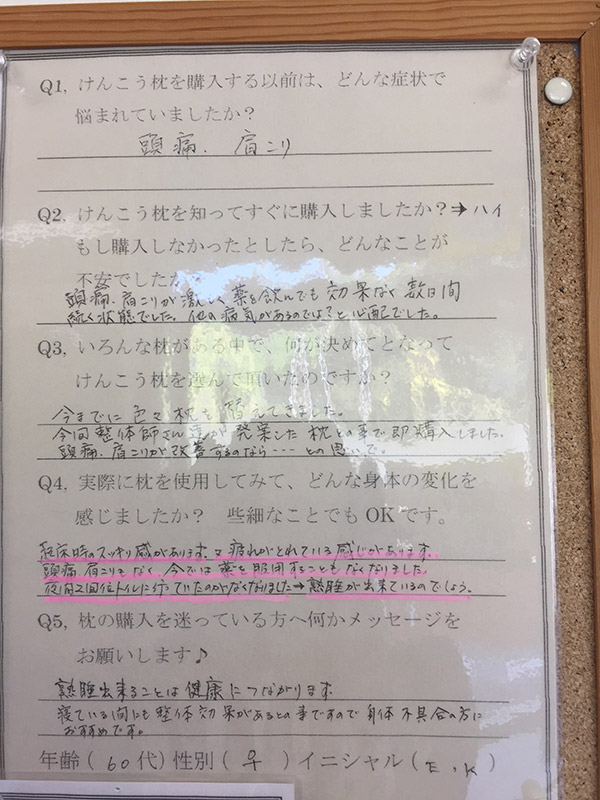 Q1, けんこう枕を購入する以前は、どんな症状で
悩まれていましたか？
頭痛. 肩こり
Q2, けんこう枕を知ってすぐに購入しましたか？→ハイ
もし購入しなかったとしたら、どんなことが
不安でしたか
頭痛. 肩こりが激しく薬を飲んでも効果なく数日間
続く状態でした。他の病気があるのでは?と心配でした。
Q3, いろんな枕がある中で、何が決めてとなって
けんこう枕を選んで頂いたのですか？
今までに色々枕も替えてきました。
今回整体師さん達が発案した枕との事で即購入しました。
頭痛. 肩こりが改善するのなら・・・・との思いで。
Q4, 実際に枕を使用してみて、どんな身体の変化を
感じましたか？ 些細なことでもOKです。
起床時のスッキリ感があります。疲れがとれている感じがあります。
頭痛. 肩こりもなく 今では薬を服用することもなくなりました。
夜間2回位トイレに行っていたのがなくなりました→熟睡が出来ているのでしょう。
Q5, 枕の購入を迷っている方へ何かメッセージを
お願いします♪
熟睡出来ることは健康につながります
寝ている間にも整体効果があるとの事ですので身体不具合の方に
おすすめです。
年齢（60代）性別（女）イニシャル（E.K）